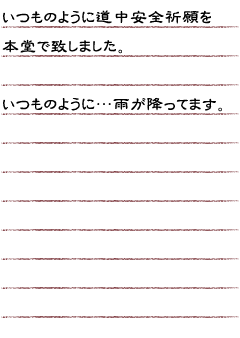 いつものように道中安全祈願を
本堂で致しました。
いつものように…雨が降ってます。